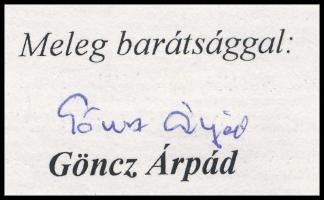 Meleg barátsággal:
Göncz Árpád
Göncz Árpád